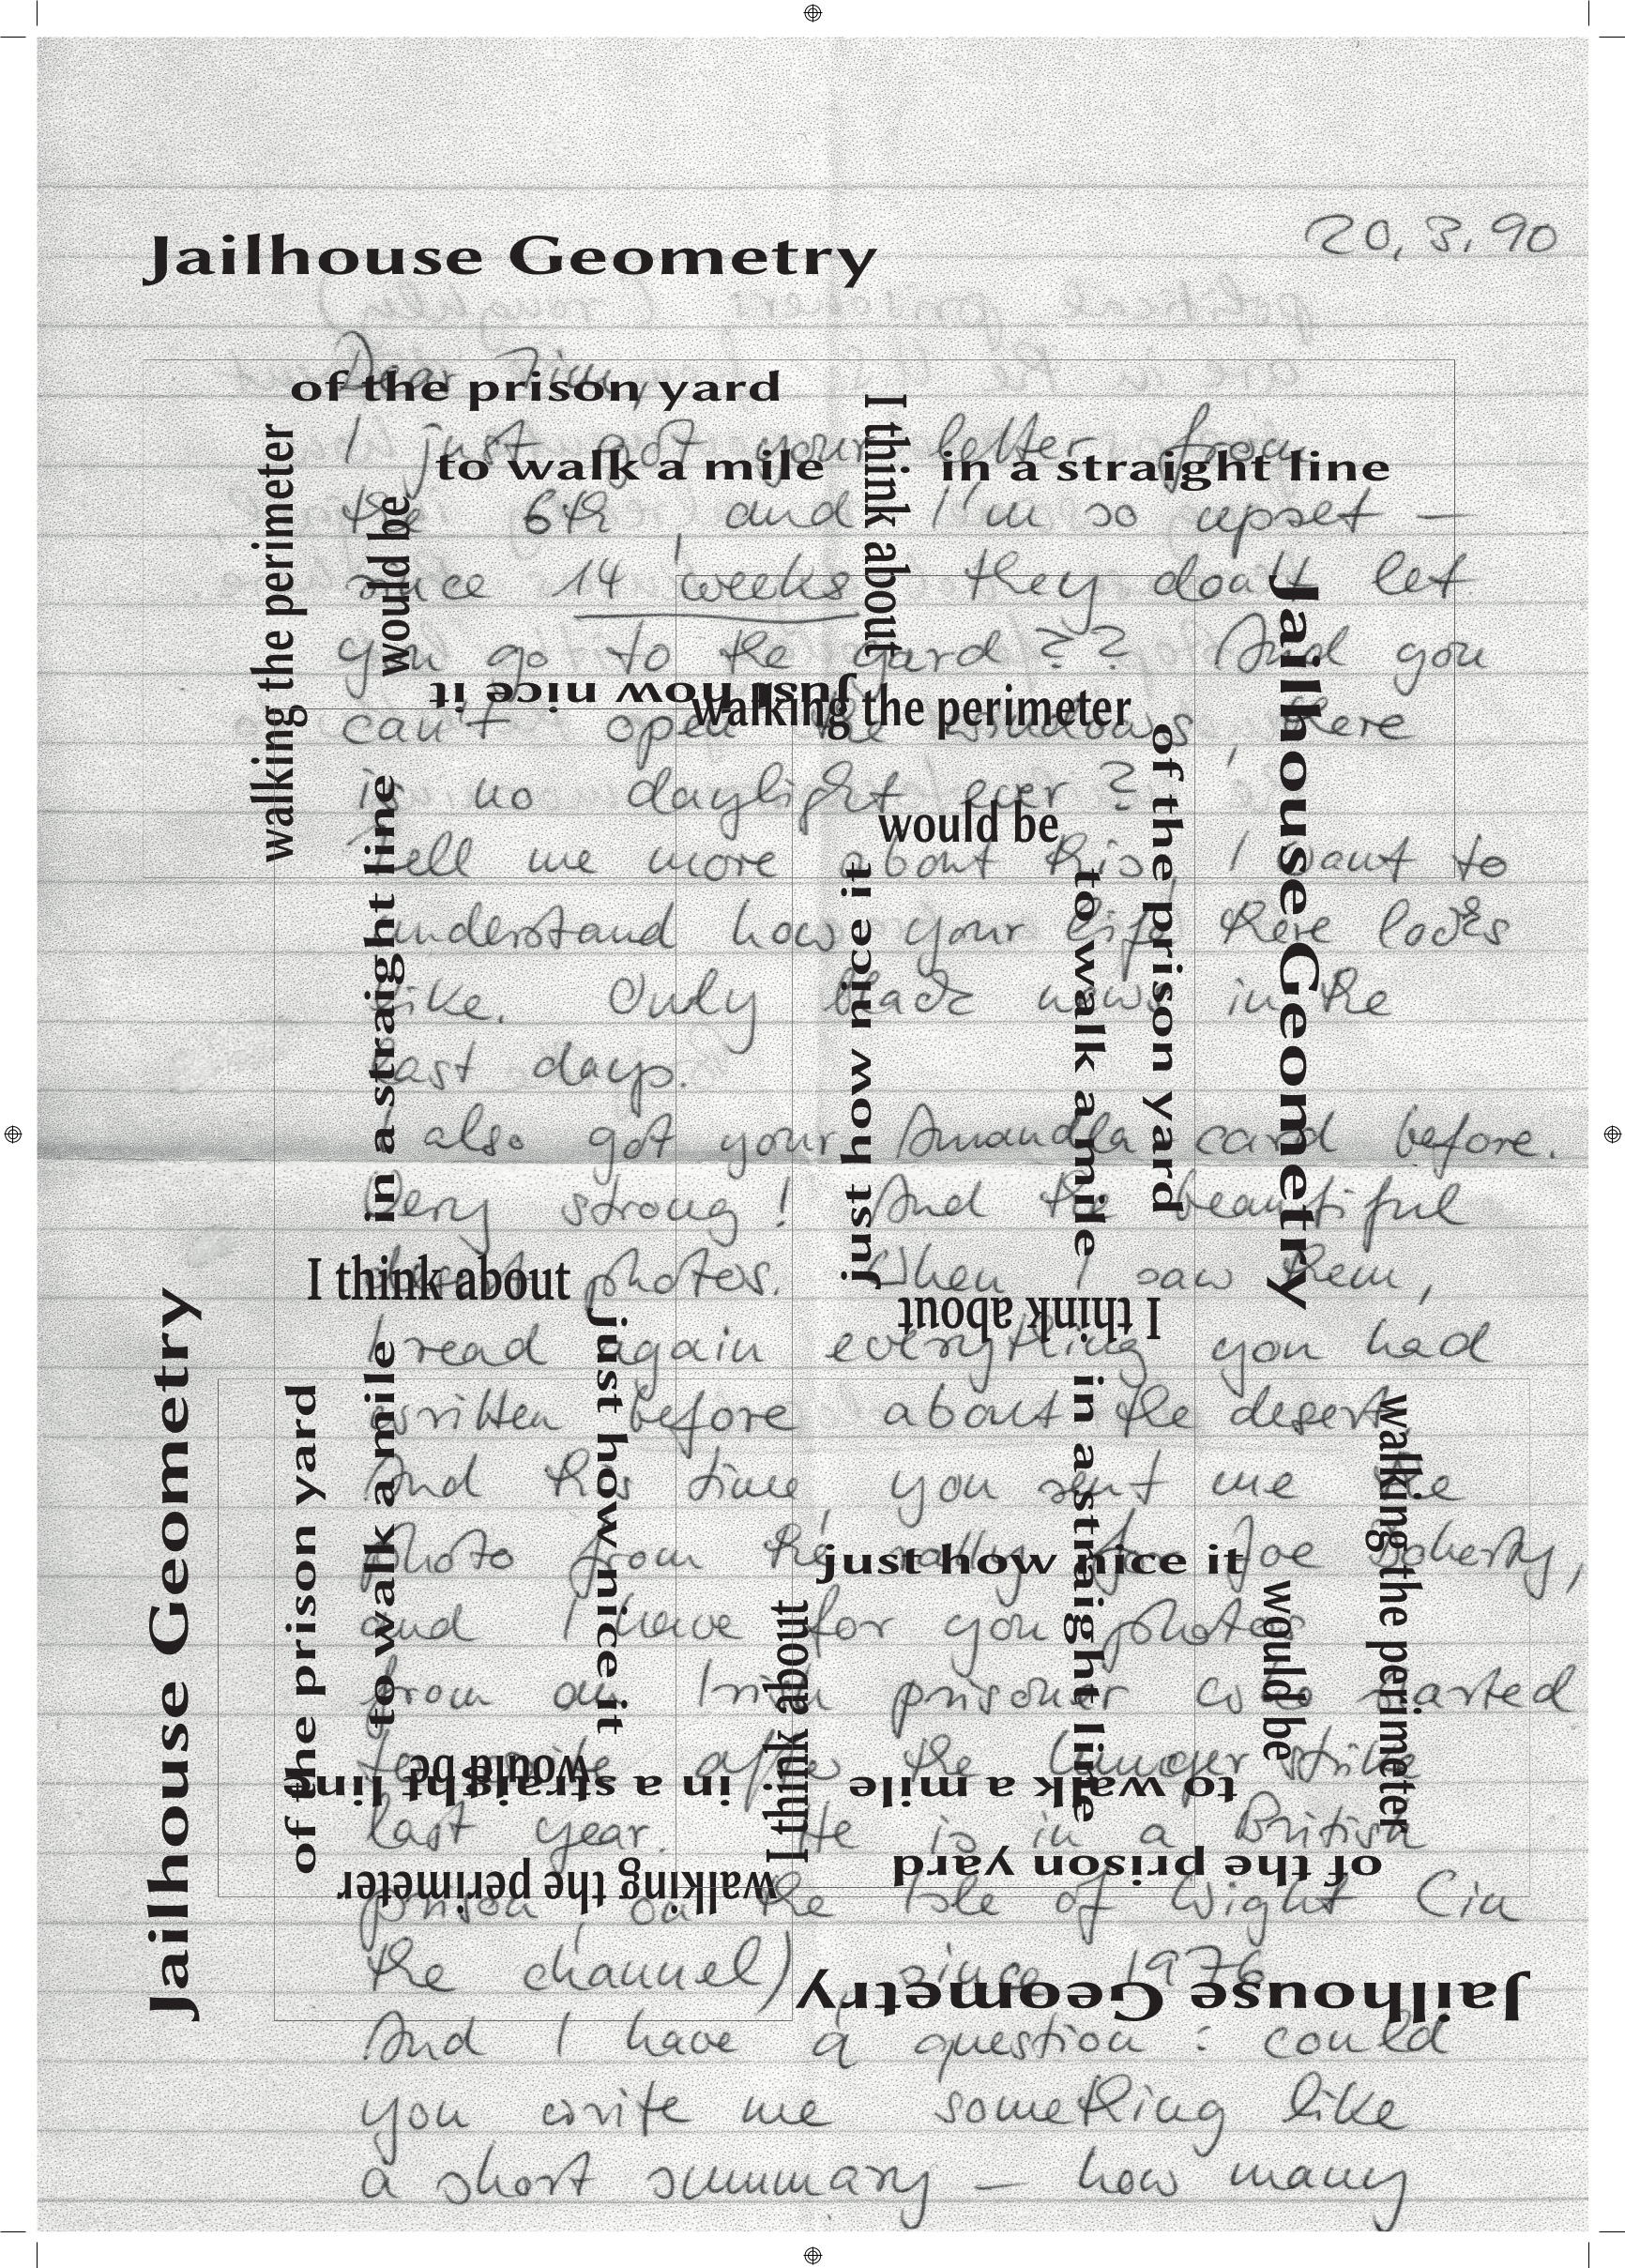 Jailhouse Geometry
20,3,90
Dear Tim,
of the prison yard
I just got your letter from
to walk a mile
in a straight line
I think about
walking the perimeter
would be
the 6th, and I'm so upset –
since 14 weeks they don't let
you go to the yard?? And you
just how nice it
walking the perimeter
can't open the windows, there
is no daylight ever?
would be
Tell me more about this, I want to
understand how your life there looks
like. Only black news in the
last days.
I also got your Amandla card before.
Very strong! And the beautiful
desert photos. When I saw them,
in a straight line
just how nice it
to walk a mile
of the prison yard
Jailhouse Geometry
I think about
I think about
I read again everything you had
written before about the desert.
And this time you sent me the
photo from the rally for Joe Doherty,
just how nice it
and I have for you photos
from an Irish prisoner who started
to write after the hunger strike
last year. He is in a British
prison on the Isle of Wight (in
the channel) since 1976.
Jailhouse Geometry
of the prison yard
to walk a mile
just how nice it
I think about
in a straight line
would be
walking the perimeter
would be
in a straight line
to walk a mile
of the prison yard
walking the perimeter
Jailhouse Geometry
And I have a question: could
you write me something like
a short summary – how many